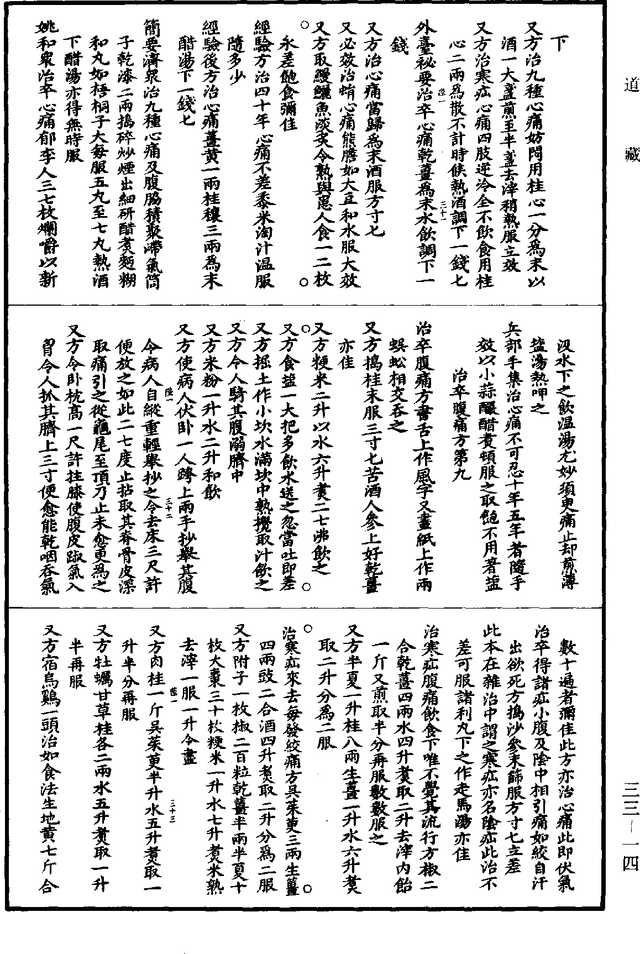 道藏
下
又方治九種心痛妨悶用桂心一分爲末以
酒一大盞煎至半盞去滓稍熱服立效
又方治寒疝心痛四肢逆冷全不飲食用桂
心二兩爲散不計時候熱酒調下一錢七
三十一
外臺祕要治卒心痛乾薑爲末水飲調下一
錢
又方治心痛當歸爲末酒服方寸七
又必效治蛕心痛熊膽如大豆和水服大效
又方取鰻鱺魚淡炙令熟與患人食一二枚
永差飽食彌佳
經驗方治四十年心痛不差黍米淘汁温服
隨多少
經驗後方治心痛薑黄一兩桂穰三兩爲末
醋湯下一錢七
簡要濟衆治九種心痛及腹脇積聚滯氣筒
子乾漆二兩搗碎炒煙出細研醋煮麪糊
和丸如梧桐子大每服五丸至七丸熱酒
下醋湯亦得無時服
姚和衆治卒心痛郁李人三七枚爛嚼以新
汲水下之飲温湯尤妙須臾痛止却煎薄
鹽湯熱呷之
兵部手集治心痛不可忍十年五年者隨手
效以小蒜釅醋煮頓服之取飽不用著鹽
治卒腹痛方第九
治卒腹痛方書舌上作風字又畫紙上作兩
蜈蚣相交吞之
又方搗桂末服三寸七苦酒人參上好乾薑
亦佳
又方粳米二升以水六升煮二七沸飲之
又方食鹽一大把多飲水送之忽當吐即差
又方掘土作小坎水滿坎中熟攪取汁飲之
又方令人騎其腹溺臍中
又方米粉一升水二升和飲
又方使病人伏卧一人跨上兩手抄舉其腹
三十二
令病人自縱重輕舉抄之令去床三尺許
便放之如此二七度止拈取其脊骨皮深
取痛引之從龜尾至頂乃止未愈更爲之
又方令卧枕高一尺許拄膝使腹皮踧氣入
胷令人抓其臍上三寸便愈能乾咽吞氣
數十遍者彌佳此方亦治心痛此即伏氣
治卒得諸疝小腹及陰中相引痛如絞自汗
出欲死方搗沙參末篩服方寸七立差
此本在雜治中謂之寒疝亦名陰疝此治不
差可服諸利丸下之作走馬湯亦佳
治寒疝腹痛飲食下唯不覺其流行方椒二
合乾薑四兩水四升煮取二升去滓内飴
一斤又煎取半分再服數數服之
又方半夏一升桂八兩生薑一升水六升煮
取二升分爲三服
治寒疝來去每發絞痛方吳茱萸三兩生薑
四兩豉二合酒四升煮取二升分爲二服
又方附子一枚椒二百粒乾薑半兩半夏十
枚大棗三十枚粳米一升水七升煮米熟
去滓一服一升令盡
三十三
又方肉桂一斤吳茱萸半升水五升煮取一
升半分再服
又方牡蠣甘草桂各二兩水五升煮取一升
半再服
又方宿烏鷄一頭治如食法生地黄七斤合
三三—一四